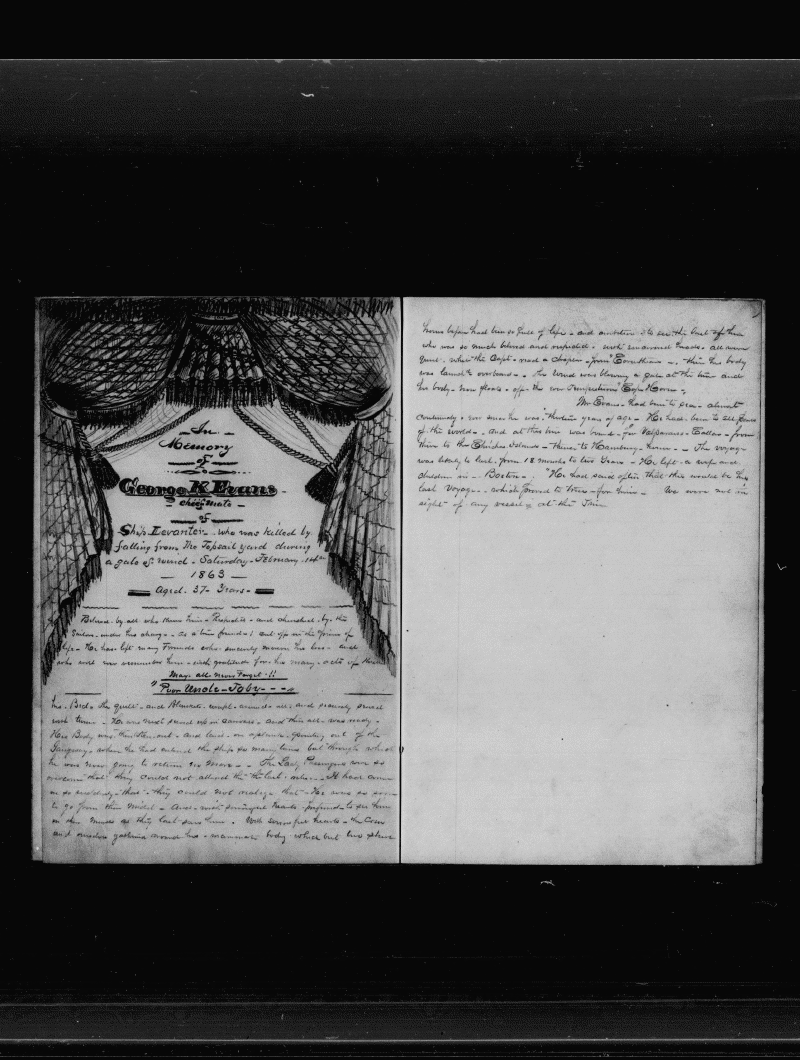 In
Memory
of
George K Evans
chief mate
of
Ship Levanter. who was killed by
falling from the Topsail yard during
a gale of wind - Saturday - February 14th
1863
Aged. 37 - Years -
Beloved by all who knew him - Respected - and cherished by the
Sailors under his charge - as a true friend - cut off in the prime of
life - He has left many Friends who sincerely mourn his loss - and
who will remember him - with gratitude for his many acts of
May all never Forget !!
"Poor Uncle - Toby - - - "
his. Bed - the quilt - and Blankets wrapt - around - all - and securely sewed
with twine - He was next sewed up in canvass - and then all - was ready -
His Body was then - and laid - on a plank - pointing out of the
Gangway - where he had entered the ship so many times but through which
he was now going to return no More - - The Lady Passengers were so
overcome that they could not attend the last - It had come
on so suddenly - that - they could not realize that - He was so soon
to go from their midst - And - with sorrowful hearts - preferred to see him
in their minds as they last saw him. With sorrowful hearts - the Crew
and gathered around his body which but two short
hours before had been so full of life - and ambition - to see the last of him
who was so much beloved and respected - with uncovered heads - all were
quiet. when the Capt - read a chapter - from "Corinthians" - then his body
was launched overboard - The wind was blowing a gale at the time and
his body now floats - off - the "Cape Horn" -
Mr Evans - had been to sea - almost
continually ever since he was thirteen years of age - He had been to all parts
of the world - and at this time was bound - for Valparaiso - Callao - from
there to the Chincha Islands - thence to Hamburg - home - - The voyage
was likely to last from 18 months to two years - He left a wife and
children in - Boston - "He had said often that this would be his
last Voyage - which proved to true - for him - We were not in
sight of any vessel - at the Time